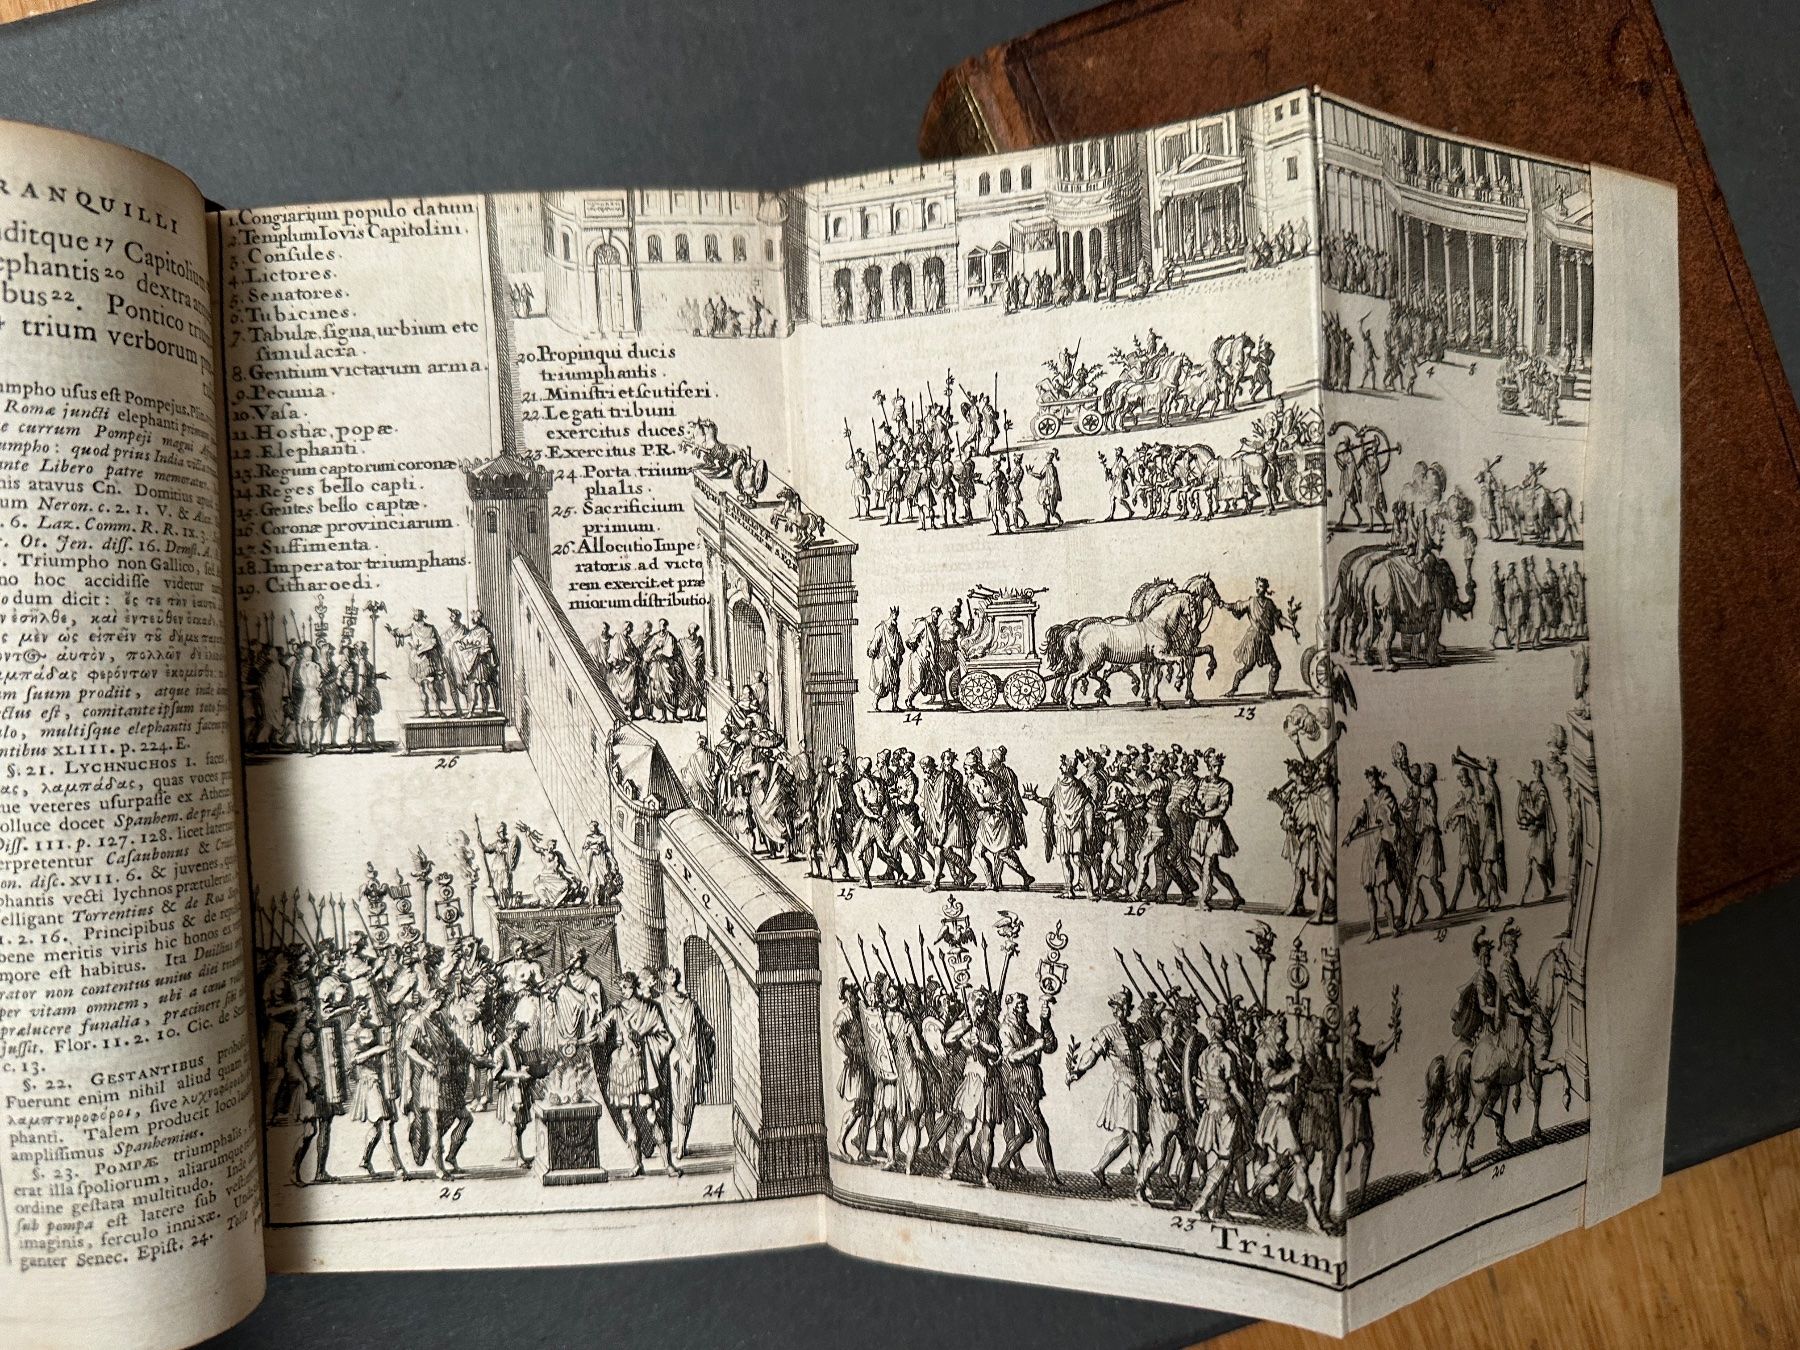 RANQUILLI
ditque 17 Capitolium
ephantis 20 dextra
bus 22. Pontico
trium verborum
umpho usus est Pompejus. Plin.
Romæ juncti elephanti primum
e currum Pompeji magni
umpho: quod prius India victa
ante Libero patre memoratur.
nis atavus Cn. Domitius
um Neron. c. 2. 1. V. &
. 6. Laz. Comm. R. R. ix. 3.
. Ot. Jen. diss. 16. Demst. A.
. Triumpho non Gallico, sed
no hoc accidisse videtur
dum dicit: ὅς τε τὴν
, καὶ ἐντεῦθεν
ς μὲν ὡς εἰπεῖν τοῦ δήμου
αὐτὸν, πολλῶν δὲ
λαμπάδας φερόντων
am suum prodiit, atque inde
ctus est, comitante ipsum toto
lo, multisque elephantis faces
ntibus XLIII. p. 224. E.
§. 21. LYCHNUCHOS I. faces,
ας, λαμπάδας, quas voces
que veteres usurpasse ex
olluce docet Spanhem. de præst.
Diss. III. p. 127. 128. licet
erpretentur Casaubonus &
on. disc. XVII. 6. & juvenes,
phantis vecti lychnos prætulerint,
elligant Torrentius & de
1. 2. 16. Principibus & de
bene meritis viris hic honos
more est habitus. Ita Duillius
rator non contentus unius diei
per vitam omnem, ubi a cœna
prælucere funalia, præcinere sibi
jussit. Flor. 11. 2. 10. Cic. de
c. 13.
§. 22. GESTANTIBUS
Fuerunt enim nihil aliud quam
λαμπτηροφόροι, sive
phanti. Talem producit loco
amplissimus Spanhemius.
§. 23. POMPÆ triumphalis.
erat illa spoliorum, aliarumque
ordine gestata multitudo. Inde
sub pompa est latere sub
imaginis, ferculo innixæ.
ganter Senec. Epist. 24. Tolle
1. Congiarium populo datum
2. Templum Iovis Capitolini.
3. Consules.
4. Lictores.
5. Senatores.
6. Tubicines.
7. Tabulæ, signa, urbium etc
simulacra.
8. Gentium victarum arma.
9. Pecunia.
10. Vasa.
11. Hostiæ, popæ.
12. Elephanti.
13. Regum captorum coronæ
14. Reges bello capti.
15. Gentes bello captæ.
16. Coronæ provinciarum.
17. Suffimenta.
18. Imperator triumphans.
19. Citharoedi.
20. Propinqui ducis
triumphantis.
21. Ministri et scutiferi.
22. Legati tribuni
exercitus duces.
23. Exercitus P.R.
24. Porta trium
phalis.
25. Sacrificium
primum.
26. Allocutio Impe-
ratoris ad victo
rem exercit. et præ
miorum distributio.
4
14
13
26
15
16
19
S P Q R
25
24
23
20
Triump